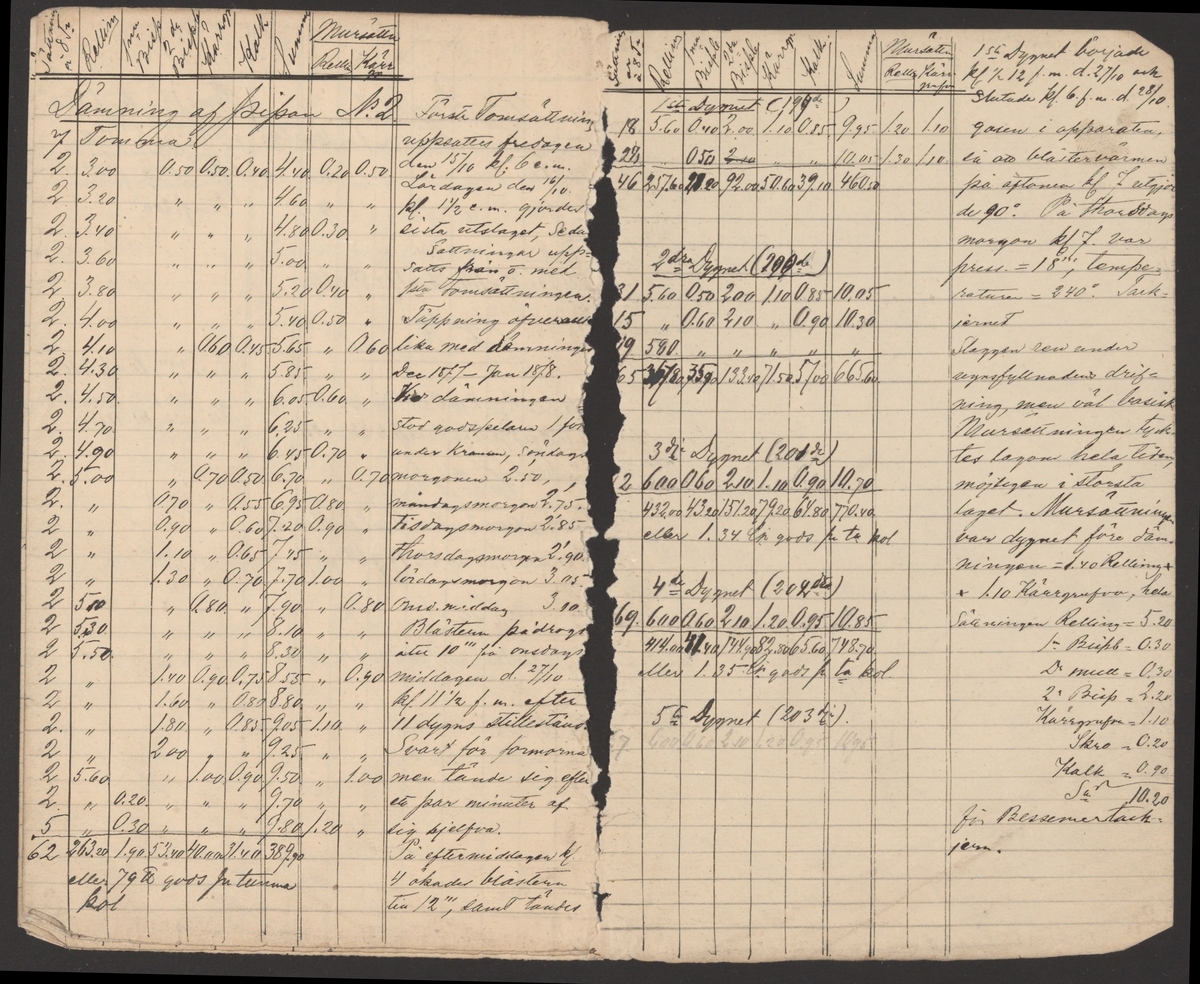 Relling
Bisp
2de Bispb
Kalk
Summa
Mursättn
Relln Kärr
Dämning af pipan N:o 2.
7 Tomma
2. 3.00 0.50 0.50 0.40 4.40 0.20 0.50
2. 3.20 " " " 4.60 " "
2. 3.40 " " " 4.80 0.30 "
2. 3.60 " " " 5.00 " "
2 3.80 " " " 5.20 0.40 "
2. 4.00 " " " 5.40 0.50 "
2. 4.10 " 0.60 0.45 5.65 " 0.60
2. 4.30 " " " 5.85 " "
2. 4.50 " " " 6.05 0.60 "
2. 4.70 " " " 6.25 " "
2. 4.90 " " " 6.45 0.70 "
2. 5.00 " 0.70 0.50 6.70 " 0.70
2. " 0.70 " 0.55 6.95 0.80 "
2 " 0.90 " 0.60 7.20 0.90 "
2 " 1.10 " 0.65 7.45 " "
2 " 1.30 " 0.70 7.70 1.00 "
2 5.10 " 0.80 " 7.90 " 0.80
2 5.30 " " " 8.10 " "
2 5.50 " " " 8.30 " "
2 " 1.40 0.90 0.75 8.55 " 0.90
2 " 1.60 " 0.80 8.80 " "
2. " 1.80 " 0.85 9.05 1.10 "
2 " 2.00 " " 9.25 " "
2 5.60 " 1.00 0.90 9.50 " 1.00
2. " 0.20 " " " 9.70 " "
5 " 0.30 " " " 9.80 1.20 "
62 263.20 1.90 53.40 40.00 31.40 389.90
eller 79 ℔ gods pr tunna
kol
Första Tomsättning
uppsattes fredagen
den 15/10 kl. 6 e.m.
Lördagen den 16/10
kl. 1 1/2 e.m. gjordes
sista utslaget, sedan
Sättningar upp-
satts från o. med
1sta Tomsättningen.
Täppning öfverens
lika med dämningen
Dec 1877 - Jan 1878.
Vid dämningen
stod godspelaren 1 fot
under Kransen, Söndags
morgonen 2.50,
måndagsmorgon 2.75,
tisdagsmorgon 2.85
thorsdagsmorgon 2.90
lördagsmorgon 3.05
onsd. middag 3.10
Blästern pådrogs
åter 10''' på onsdags
middagen d. 27/10
kl 11 1/2 f.m. efter
11 dygns stillestånd
Svart för formorna
men tände sig efter
ett par minuter af
sig sjelfva.
På eftermiddagen kl
4 ökades blästern
till 12''', samt tändes
Relling
1ma Bispb
2de Bispb
Kärrgr.
Kalk
Summa
Mursättn
Relln Kärr-
grufva
1sta Dygnet (199de)
18 5.60 0.40 2.00 1.10 0.85 9.95 1.20 1.10
28 " 0.50 " " 10.05 1.30 1.10
46 257.60 21.20 92.00 50.60 39.10 460.50
2dra Dygnet (200de)
31 5.60 0.50 2.00 1.10 0.85 10.05
15 " 0.60 2.10 " 0.90 10.30
19 5.80 " " " " "
65 133.40 71.50 57.00 665.60
3die Dygnet (201de)
2 6.00 0.60 2.10 1.10 0.90 10.70
432.00 43.20 151.20 79.20 64.80 770.40
eller 1.34 Ctr gods pr ta kol
4de Dygnet (202dra)
69. 6.00 0.60 2.10 1.20 0.95 10.85
414.00 41.40 144.90 82.80 65.60 748.70
eller 1.35 Ctr gods pr ta kol.
5te Dygnet (203die).
7 6.00 0.60 2.10 1.20 0.95 10.85
1sta Dygnet började
kl 1/2 12 f.m. d. 27/10 och
slutade kl. 6 f.m. d. 28/10.
gasen i apparaten,
så att blästervärmen
på aftonen kl 7 utgjor
de 90°. På thorsdags
morgon kl 7. var
press. = 18''', tempe-
raturen = 240°. Tack-
jernet
Slaggen ren under
ugnsfyllnadens drif-
ning, men väl basisk
Mursättningen tyck-
tes lagom hela tiden,
möjligen i största
laget. Mursättninge
var dygnet före däm-
ningen = 1.40 Relling +
+ 1.10 Kärrgrufva, hela
Sättningen Relling = 5.20
1a Bispb = 0.30
Do mull = 0.30
2a Bisp = 2.20
Kärrgrufva = 1.10
Skro = 0.20
Kalk = 0.90
Sa 10.20
för Bessemertack-
jern.